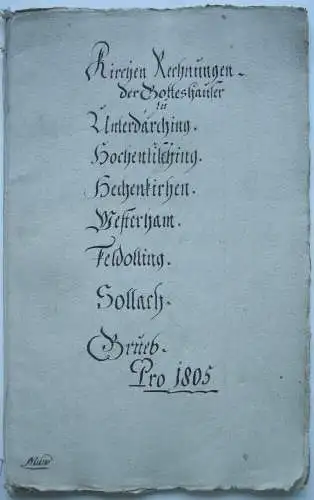 Kirchen Rechnungen
der Gotteshäuser
zu
Unterdärching.
Hochentisching.
Hechenkirhen.
Westerham.
Feldolling.
Sollach.
Grueb.
Pro 1805